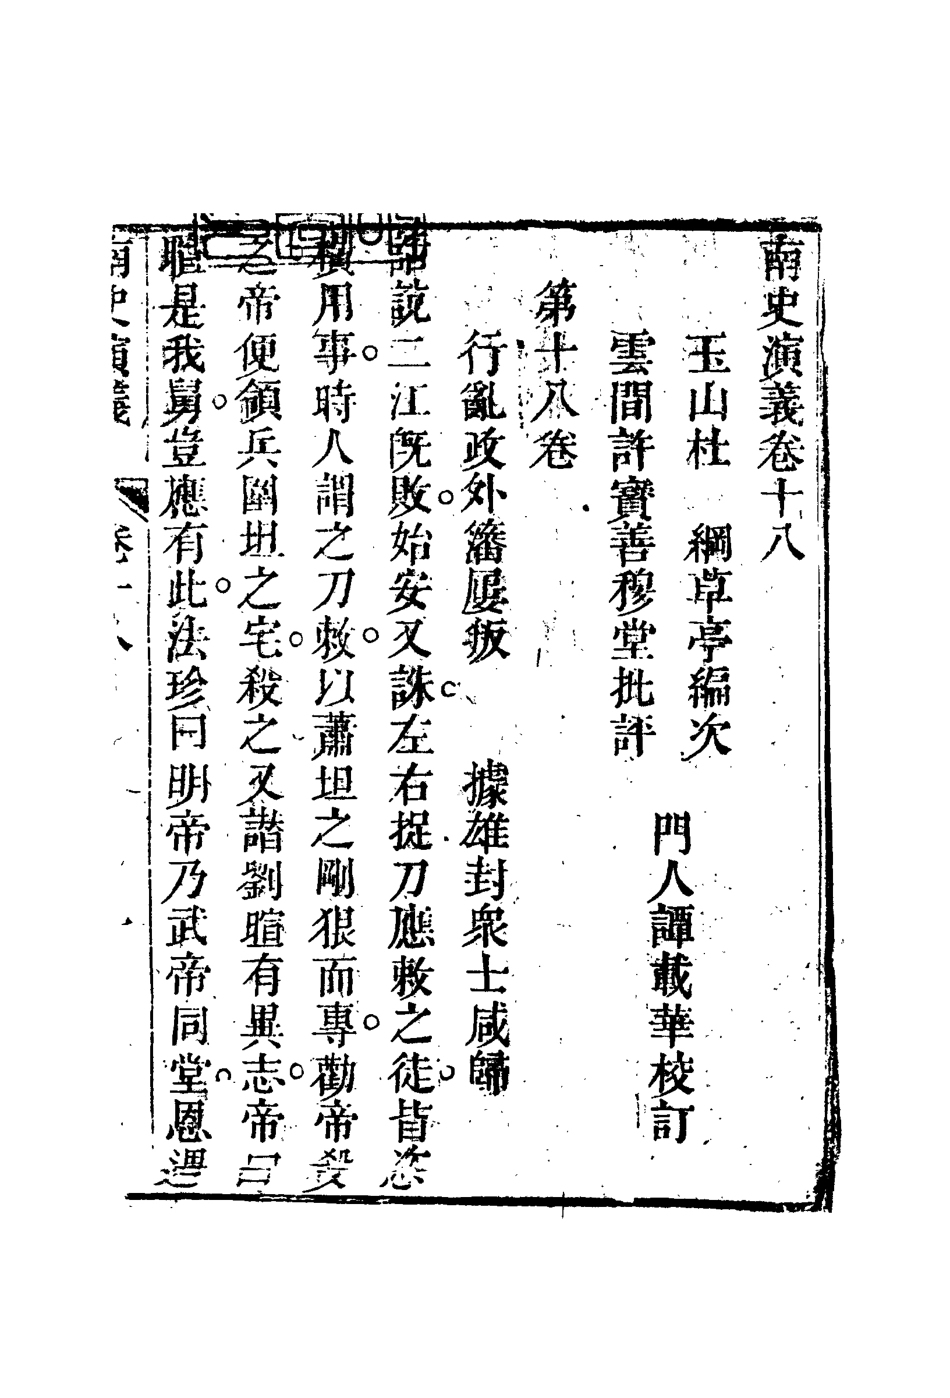 南史演義卷十八
玉山杜　綱草亭編次
雲間許寶善穆堂批評
門人譚載華校訂
第十八卷
行亂政外籓屢叛　據雄封衆士咸歸
話說二江旣敗。始安又誅。左右捉刀應敕之徒。皆恣
橫用事。時人謂之刀敕。以蕭坦之剛狠而專。勸帝殺
之。帝便領兵圍坦之宅。殺之。又譖劉暄有異志。帝曰
暄是我舅。豈應有此。法珍曰。明帝乃武帝同堂。恩遇
南史演義　卷十八